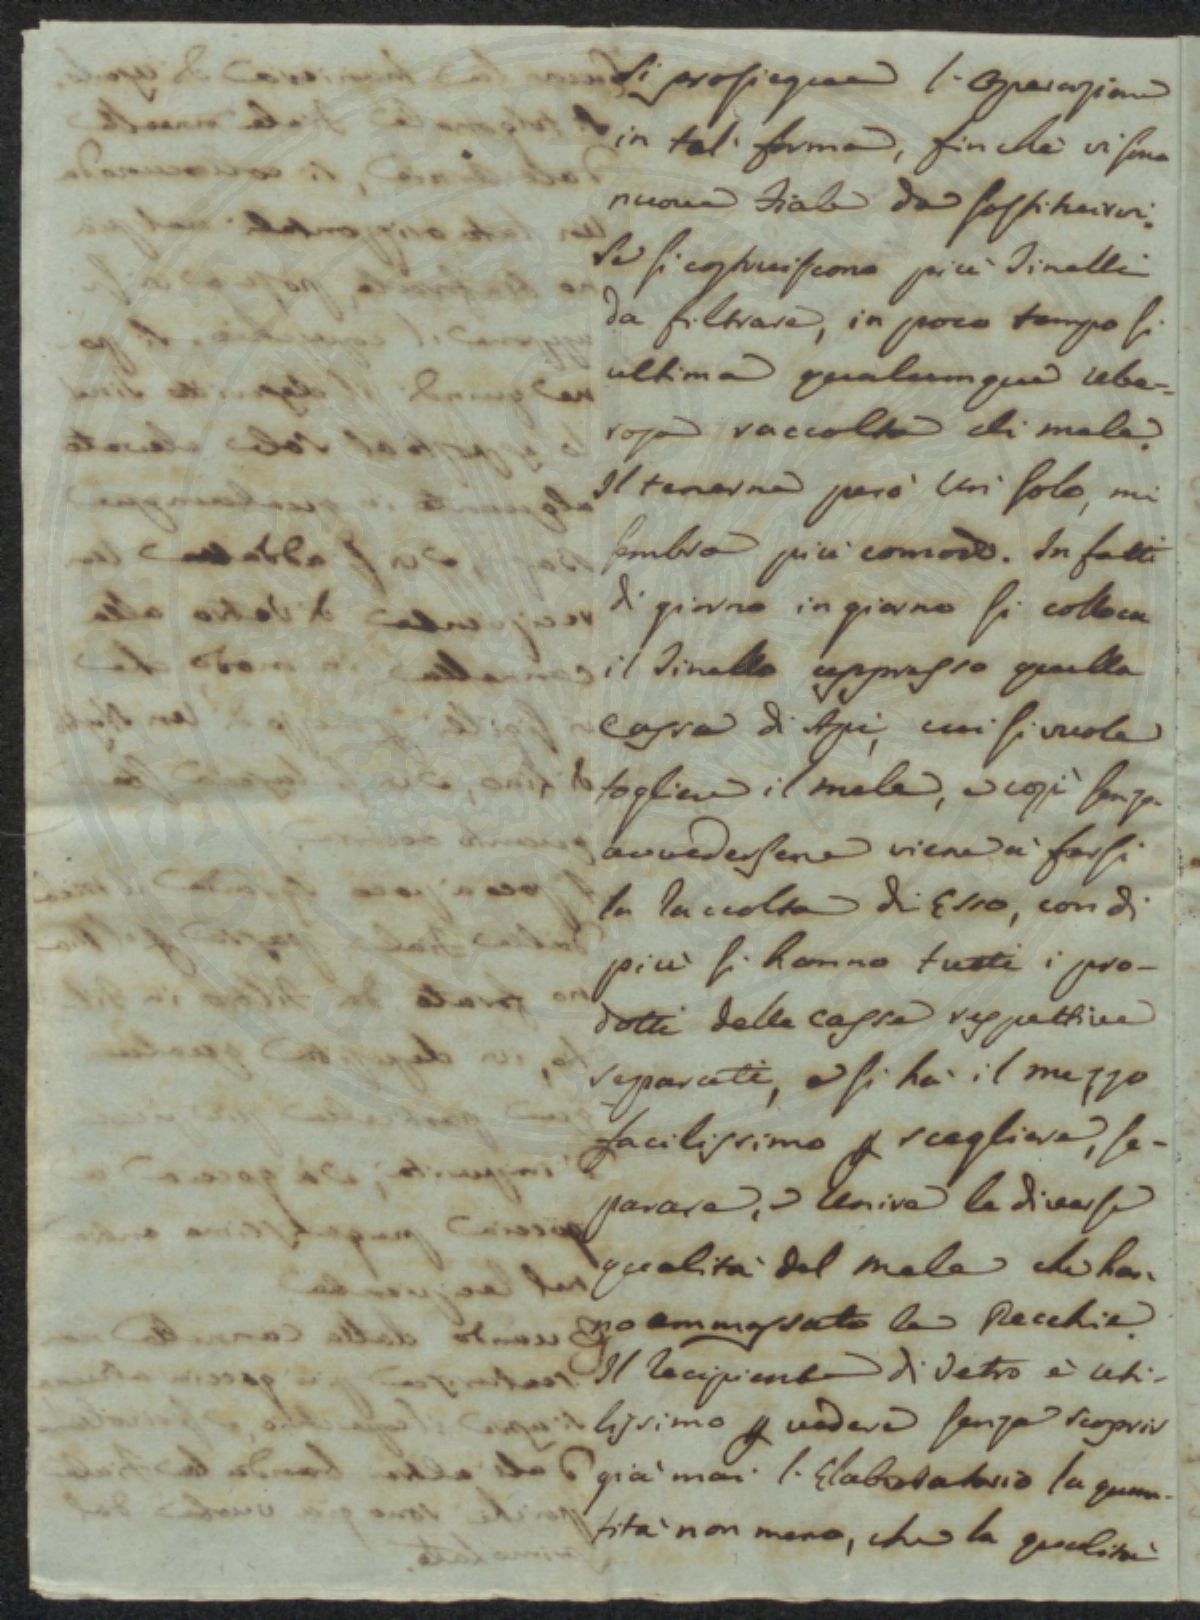 Si prosiegue l'operazione
in tal forma, finchè vi sono
nuove Fiale da sostituirvi.
Se si costruiscono più Tinelli
da filtrare, in poco tempo si
ultima qualunque ube-
rosa raccolta di mele.
Il tenerne però un solo, mi
sembra più comodo. In fatti
di giorno in giorno si colloca
il Tinello appresso quella
cassa di Api, cui si vuole
togliere il mele, e così senza
avvedersene viene à farsi
la raccolta di Esso, con di
più si hanno tutti i pro-
dotti delle casse respettive
separati, e si hà il mezzo
facilissimo p scegliere, se-
parare, e unire le diverse
qualità del mele che han-
no ammassato le Pecchie.
Il recipiente di vetro è uti-
lissimo p vedere senza scoprir
già mai l'Elaboratorio la quan-
tità non meno, che la qualità